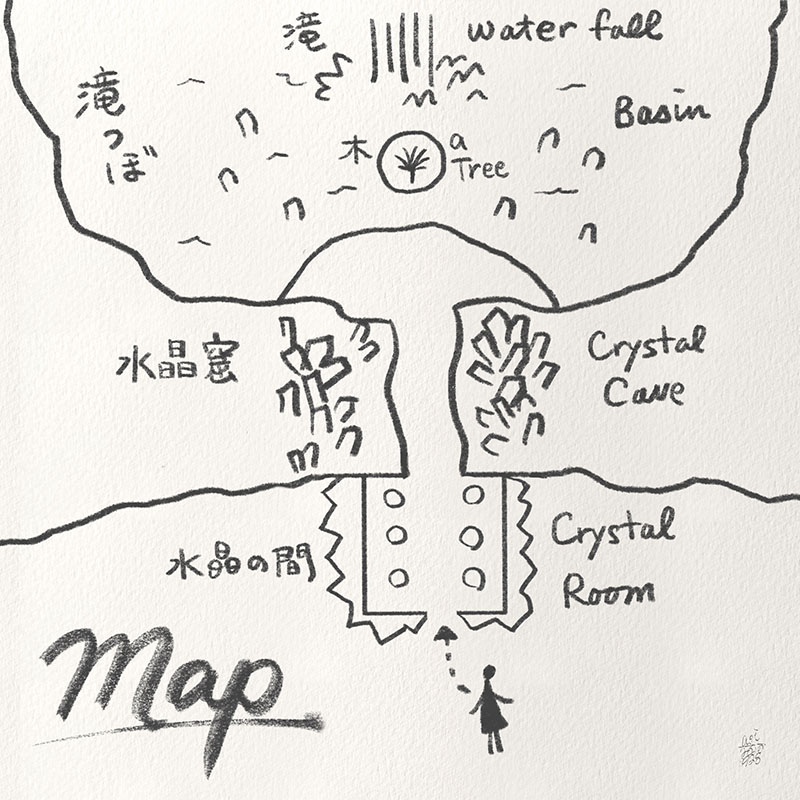 滝
water fall
滝つぼ
Basin
木
a
Tree
水晶窟
Crystal
Cave
水晶の間
Crystal
Room
Map